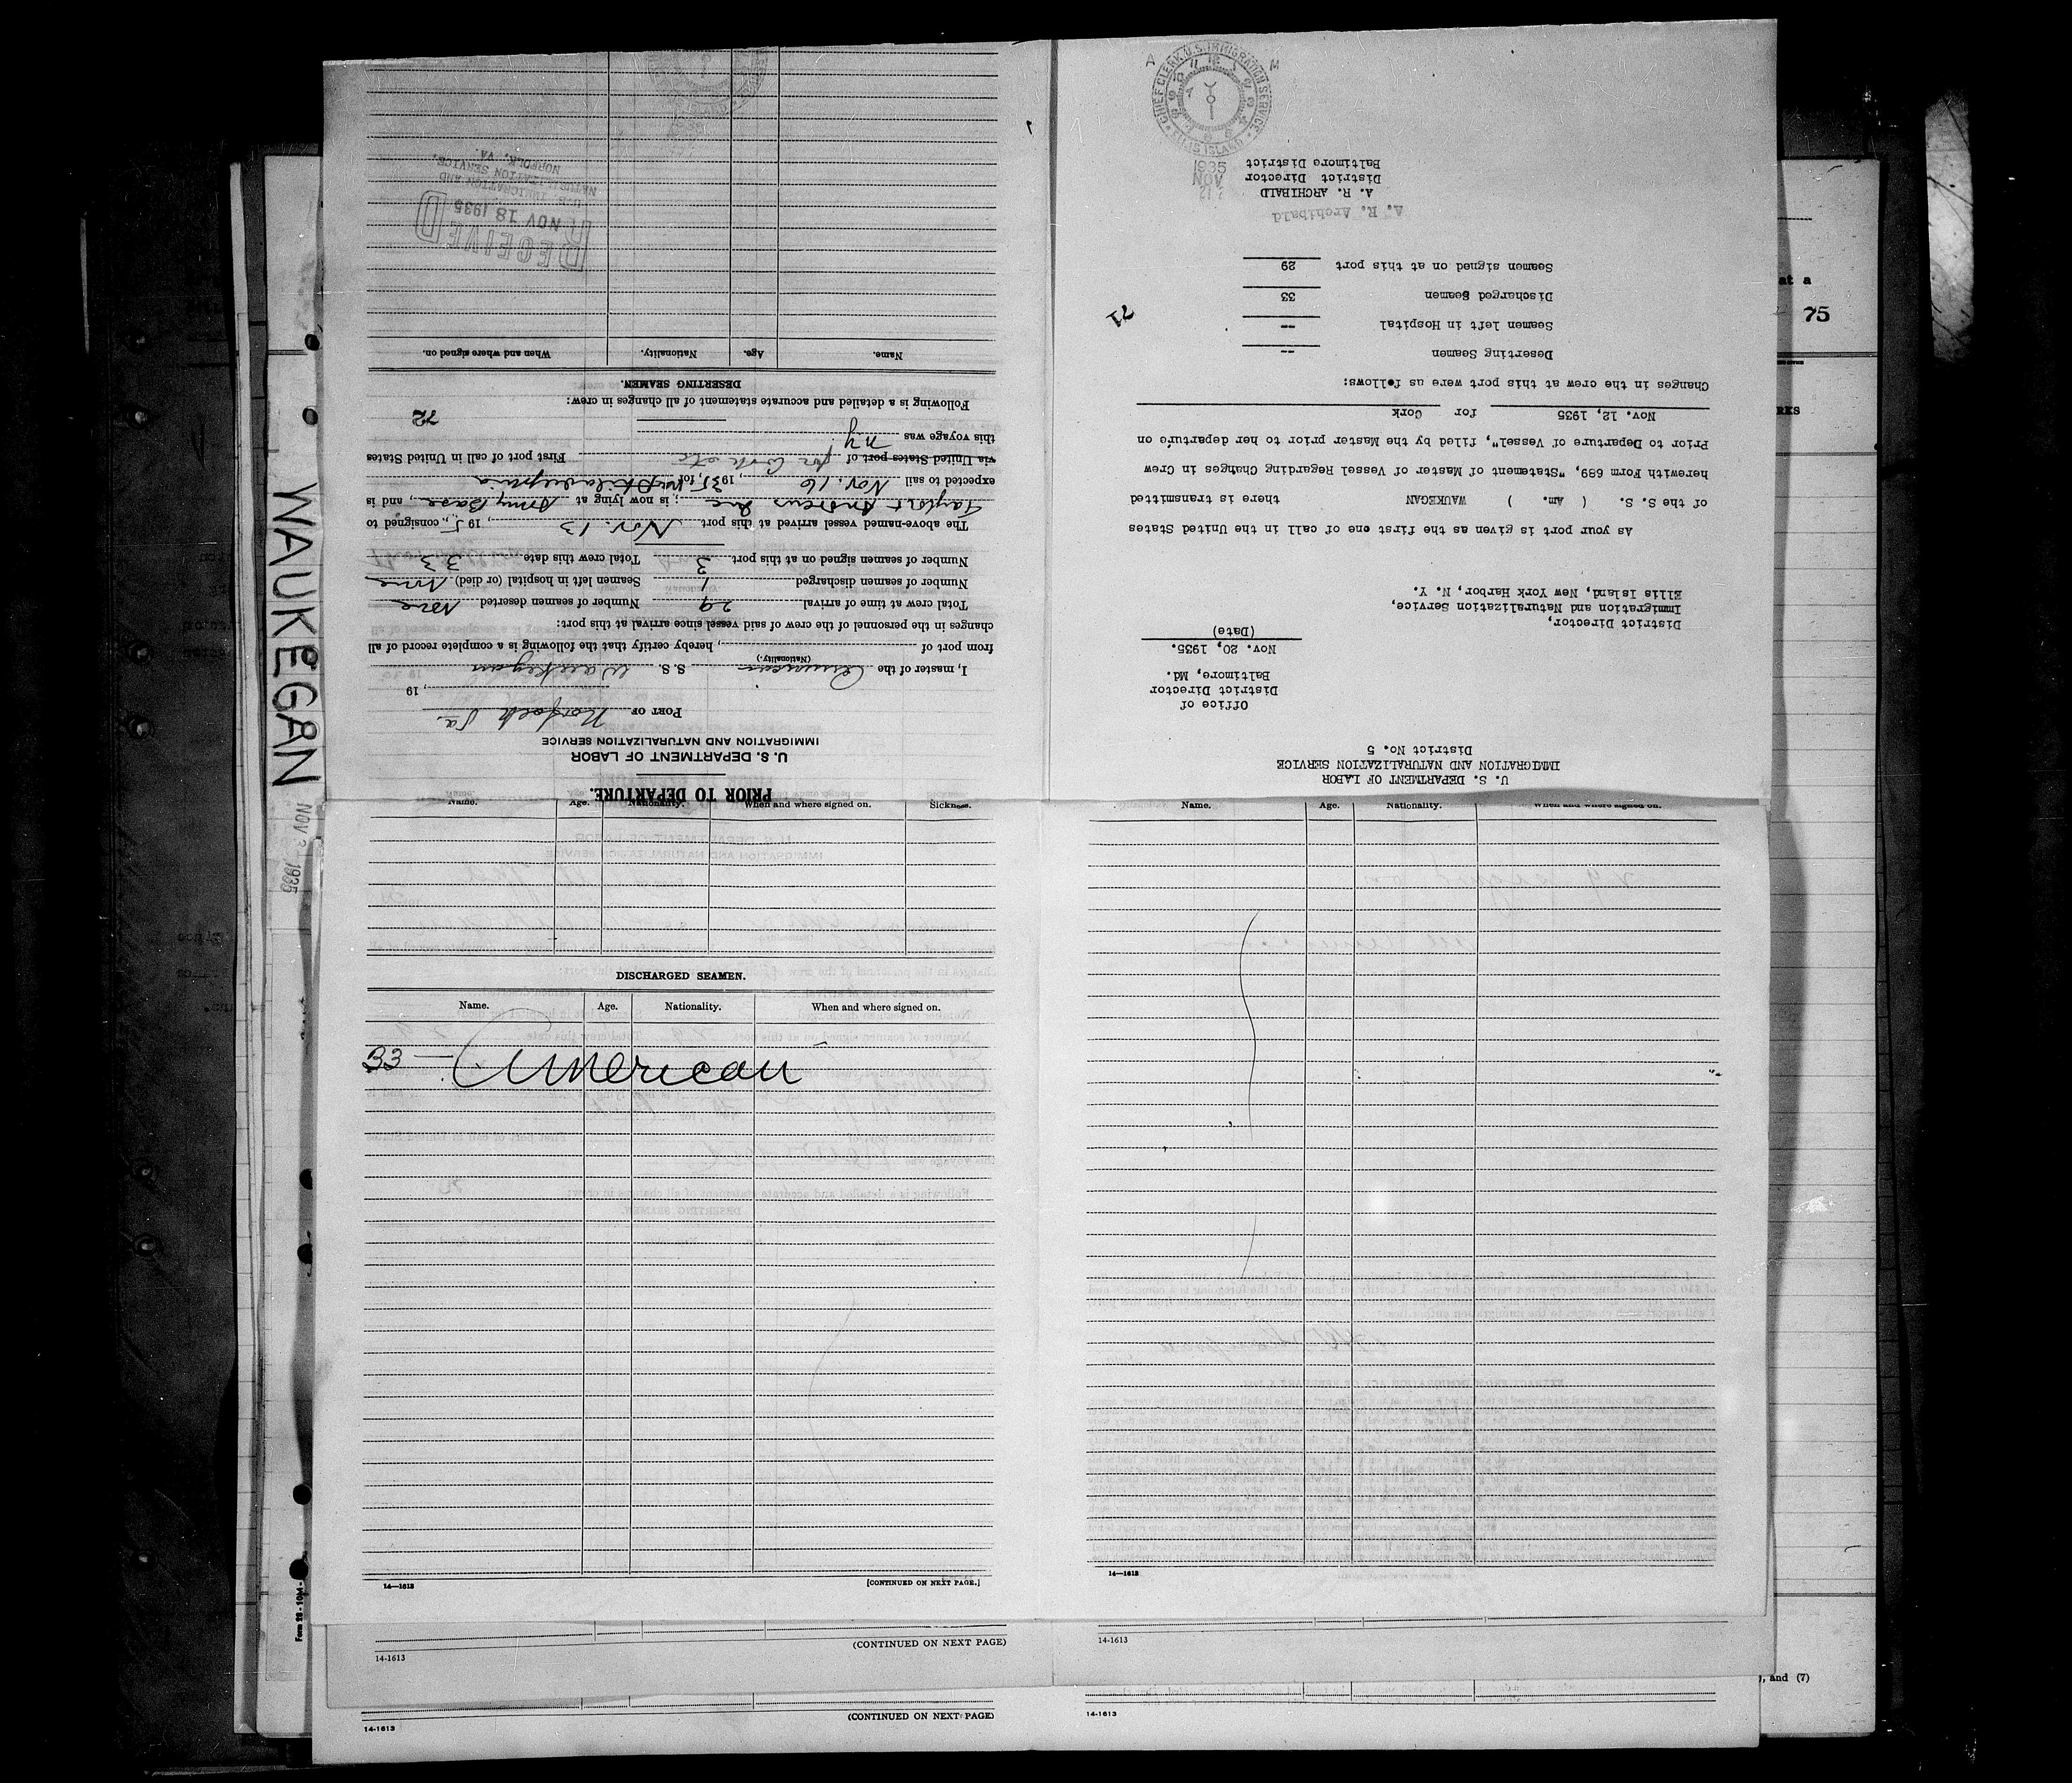 U. S. DEPARTMENT OF LABOR
IMMIGRATION AND NATURALIZATION SERVICE
District No. 5
Office of
District Director
Baltimore, Md.
Nov. 20, 1935.
(Date)
District Director,
Immigration and Naturalization Service,
Ellis Island, New York Harbor, N. Y.
As your port is given as the first one of call in the United States
of the S. S. ( Am. ) WAUKEGAN there is transmitted
herewith Form 689, "Statement of Master of Vessel Regarding Changes in Crew
Prior to Departure of Vessel", filed by the Master prior to her departure on
Nov. 12, 1935 for Cork
Changes in the crew at this port were us follows:
Deserting Seamen --
Seamen left in Hospital --
Discharged Seamen 33
Seamen signed on at this port 29
71
A. R. Archibald
A. R. ARCHIBALD
District Director
Baltimore District
CHIEF CLERK, U.S. IMMIGRATION SERVICE
ELLIS ISLAND
A M
1935
NOV
PRIOR TO DEPARTURE.
U. S. DEPARTMENT OF LABOR
IMMIGRATION AND NATURALIZATION SERVICE
PORT OF Norfolk Va
, 19
I, master of the American S. S. Waukegan
(Nationality.)
from port of , hereby certify that the following is a complete record of all
changes in the personnel of the crew of said vessel since arrival at this port:
Total crew at time of arrival 29 Number of seamen deserted None
Number of seamen discharged 1 Seamen left in hospital (or died) None
Number of seamen signed on at this port 3 Total crew this date 33
The above-named vessel arrived at this port Nov. 13, 1935, consigned to
Taylor & Andrews Inc; is now lying at Army Base, and is
expected to sail Nov. 16, 1935, for Philadelphia
via United States port of for Cork etc First port of call in United States
this voyage was NY
Following is a detailed and accurate statement of all changes in crew:
72
DESERTING SEAMEN.
Name. Age. Nationality. When and where signed on.
RECEIVED
NOV 18 1935
U.S. IMMIGRATION AND
NATURALIZATION SERVICE,
NORFOLK, VA.
WAUKEGAN
NOV 1935
Name. Age. Nationality. When and where signed on. Sickness.
DISCHARGED SEAMEN.
Name. Age. Nationality. When and where signed on.
33 — American
14—1613 [CONTINUED ON NEXT PAGE.]
Name. Age. Nationality. When and where signed on.
14—1613
(CONTINUED ON NEXT PAGE)
14-1613
14-1613
(CONTINUED ON NEXT PAGE)
14-1613
14-1613
at a
75
, and (7)